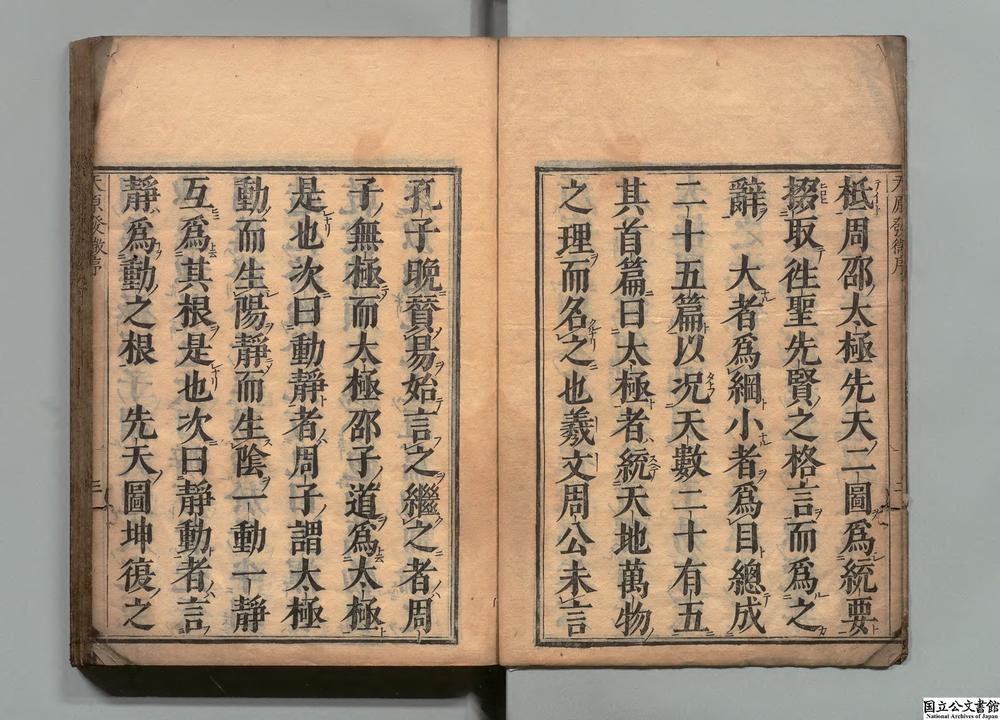 柢周邵太極先天二圖爲統要
掇取徃聖先賢之格言而爲之
辭大者爲綱小者爲目總成
二十五篇以况天數二十有五
其首篇曰太極者統天地萬物
之理而名之也羲文周公未言
孔子晚賛易始言之繼之者周
子無極而太極邵子道爲太極
是也次曰動靜者周子謂太極
動而生陽靜而生陰一動一靜
互爲其根是也次曰靜動者言
靜爲動之根 先天圖坤復之
天原發微序
二
天原發微序
三
国立公文書館
National Archives of Japan